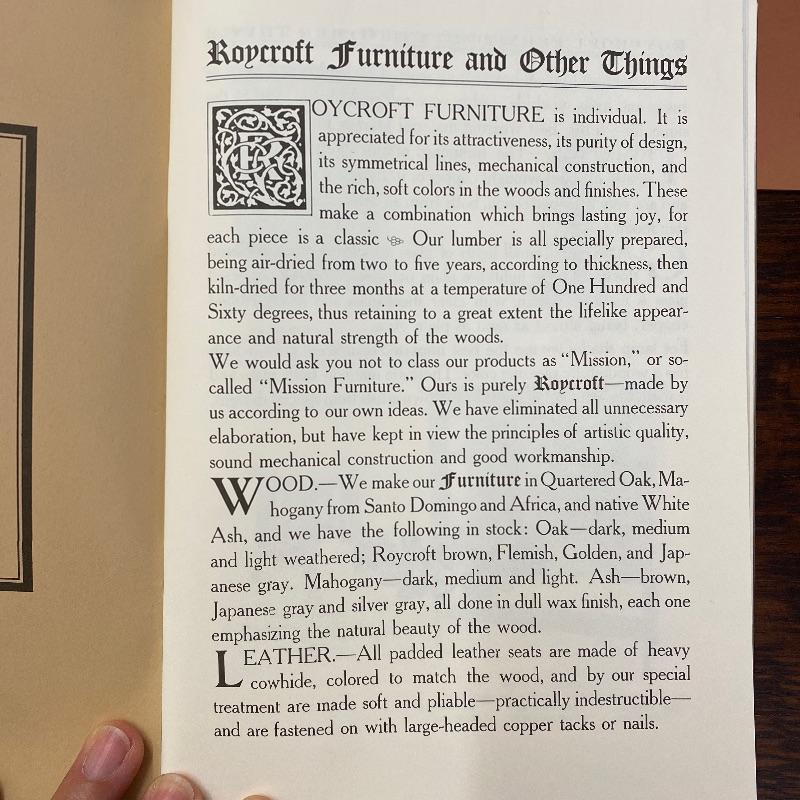 Roycroft Furniture and Other Things
ROYCROFT FURNITURE is individual. It is
appreciated for its attractiveness, its purity of design,
its symmetrical lines, mechanical construction, and
the rich, soft colors in the woods and finishes. These
make a combination which brings lasting joy, for
each piece is a classic Our lumber is all specially prepared,
being air-dried from two to five years, according to thickness, then
kiln-dried for three months at a temperature of One Hundred and
Sixty degrees, thus retaining to a great extent the lifelike appear-
ance and natural strength of the woods.
We would ask you not to class our products as “Mission,” or so-
called “Mission Furniture.” Ours is purely Roycroft—made by
us according to our own ideas. We have eliminated all unnecessary
elaboration, but have kept in view the principles of artistic quality,
sound mechanical construction and good workmanship.
WOOD.—We make our Furniture in Quartered Oak, Ma-
hogany from Santo Domingo and Africa, and native White
Ash, and we have the following in stock: Oak—dark, medium
and light weathered; Roycroft brown, Flemish, Golden, and Jap-
anese gray. Mahogany—dark, medium and light. Ash—brown,
Japanese gray and silver gray, all done in dull wax finish, each one
emphasizing the natural beauty of the wood.
LEATHER.—All padded leather seats are made of heavy
cowhide, colored to match the wood, and by our special
treatment are made soft and pliable—practically indestructible—
and are fastened on with large-headed copper tacks or nails.